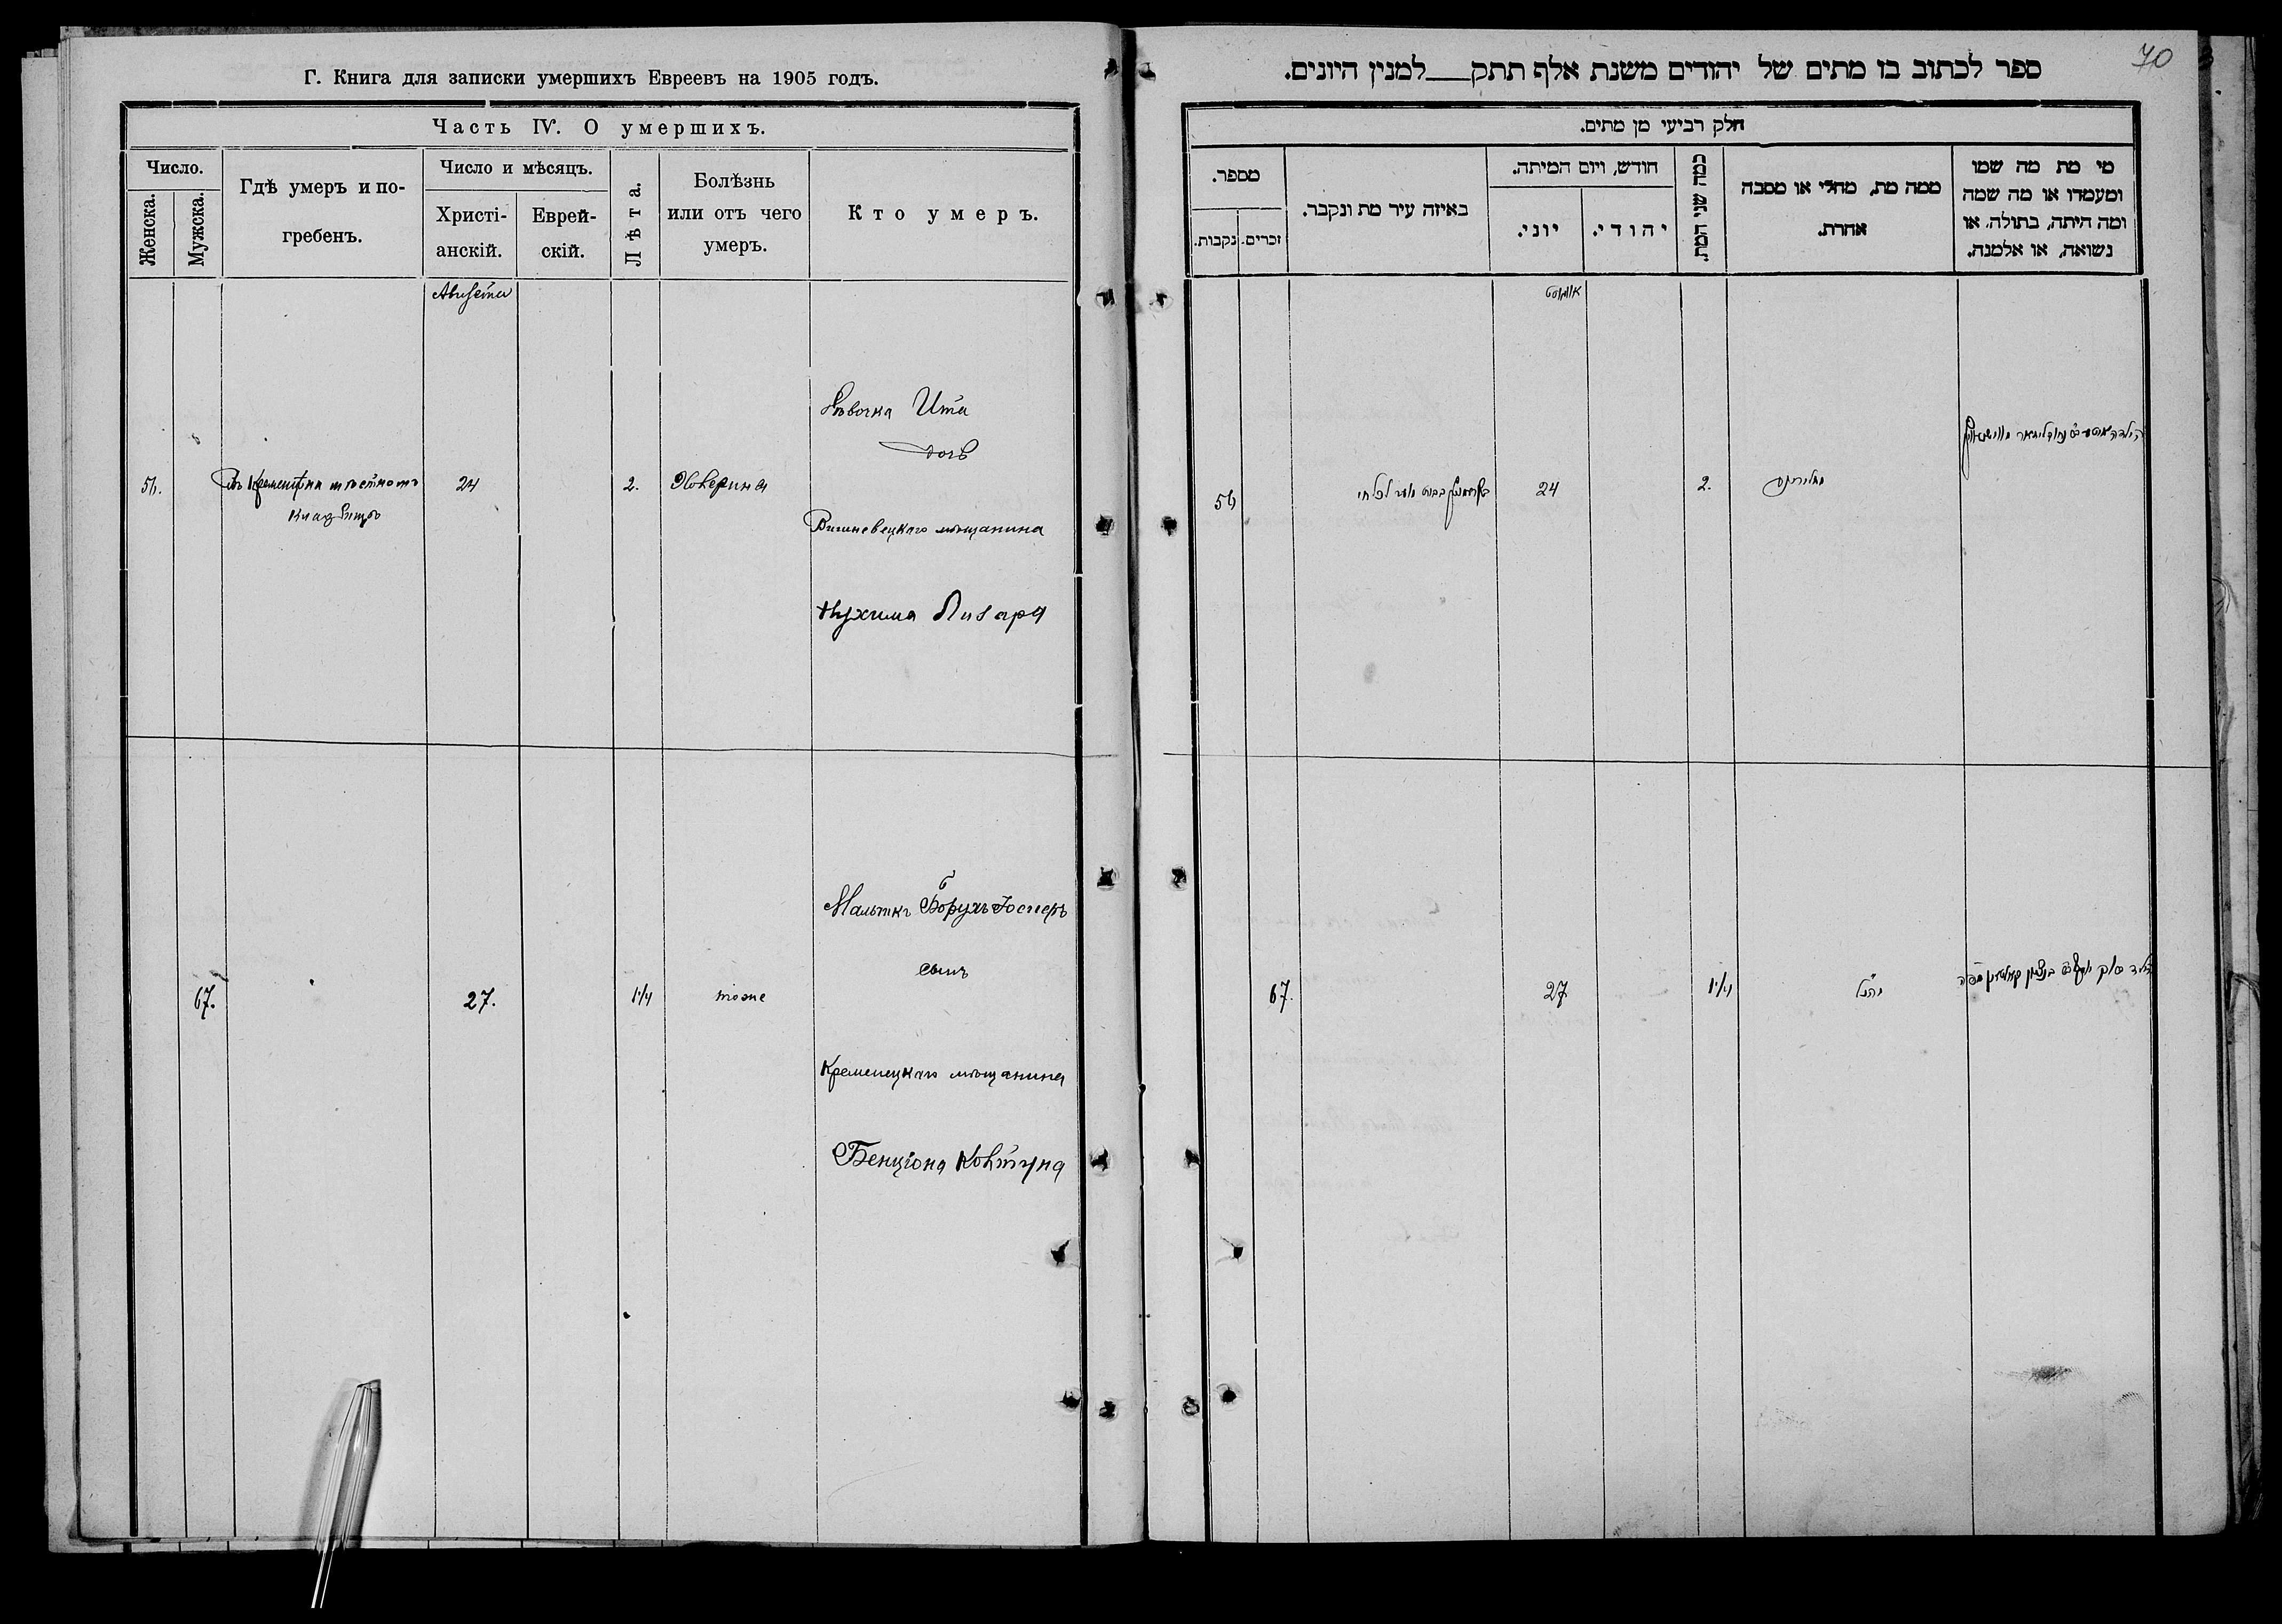 Г. Книга для записки умершихъ Евреевъ на 1905 годъ.
Часть IV. О умершихъ.
Число.
Женска.
Мужска.
Гдѣ умеръ и по-
гребенъ.
Число и мѣсяцъ.
Христі-
анскій.
Еврей-
скій.
Лѣта.
Болѣзнь
или отъ чего
умеръ.
Кто умеръ.
Августа
56.
Въ Кременцѣ на мѣстномъ
кладбищѣ
24
2.
Холерина
Дѣвочка Ита
дочь
Вишневецкаго мѣщанина
Нухима
67.
27.
1 1/4
тоже
Мальчикъ Борухъ
сынъ
Кременецкаго мѣщанина
Бенціона Ковтуна
70
ספר לכתוב בו מתים של יהודים משנת אלף תתק למנין היונים.
חלק רביעי מן מתים.
מספר.
נקבות.
זכרים.
באיזה עיר מת ונקבר.
חודש, ויום המיתה.
יוני.
יהודי.
כמה שני המת.
ממה מת, מחלי או מסבה
אחרת.
מי מת מה שמו
ומעמדו או מה שמה
ומה היתה, בתולה, או
נשואה, או אלמנה.
אוגוסט
56
24
2.
67.
27
1 1/4